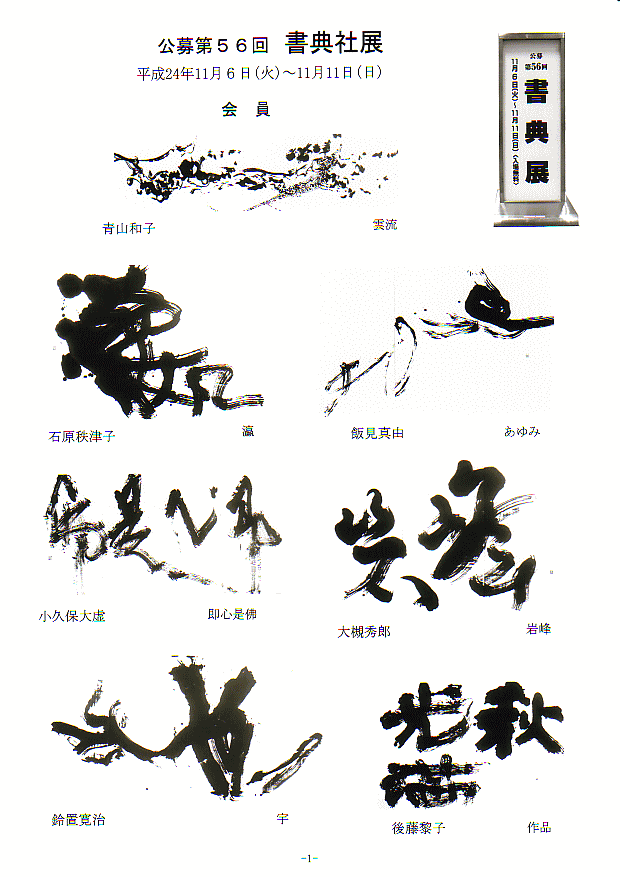 公募第５６回 書典社展
平成24年11月６日(火)～11月11日(日)
公募
第56回
書典展
11月6日(火)～11月11日(日)
会 員
青山和子 雲流
石原秩津子 瀛
飯見真由 あゆみ
小久保大虚 即心是佛
大槻秀郎 岩峰
鈴置寛治 宇
後藤黎子 作品
-1-